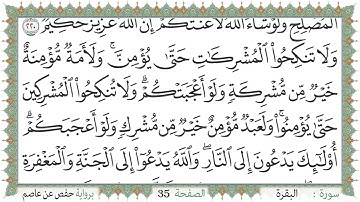 ٱلْمُصْلِحِ وَلَوْ شَآءَ ٱللَّهُ لَأَعْنَتَكُمْ إِنَّ ٱللَّهَ عَزِيزٌ حَكِيمٌ ٢٢٠
وَلَا تَنكِحُوا۟ ٱلْمُشْرِكَٰتِ حَتَّىٰ يُؤْمِنَّ ۚ وَلَأَمَةٌ مُّؤْمِنَةٌ
خَيْرٌ مِّن مُّشْرِكَةٍ وَلَوْ أَعْجَبَتْكُمْ ۗ وَلَا تُنكِحُوا۟ ٱلْمُشْرِكِينَ
حَتَّىٰ يُؤْمِنُوا۟ ۚ وَلَعَبْدٌ مُّؤْمِنٌ خَيْرٌ مِّن مُّشْرِكٍ وَلَوْ أَعْجَبَكُمْ ۗ
أُو۟لَٰٓئِكَ يَدْعُونَ إِلَى ٱلنَّارِ ۖ وَٱللَّهُ يَدْعُوٓا۟ إِلَى ٱلْجَنَّةِ وَٱلْمَغْفِرَةِ
سورة : البقرة الصفحة 35 برواية حفص عن عاصم